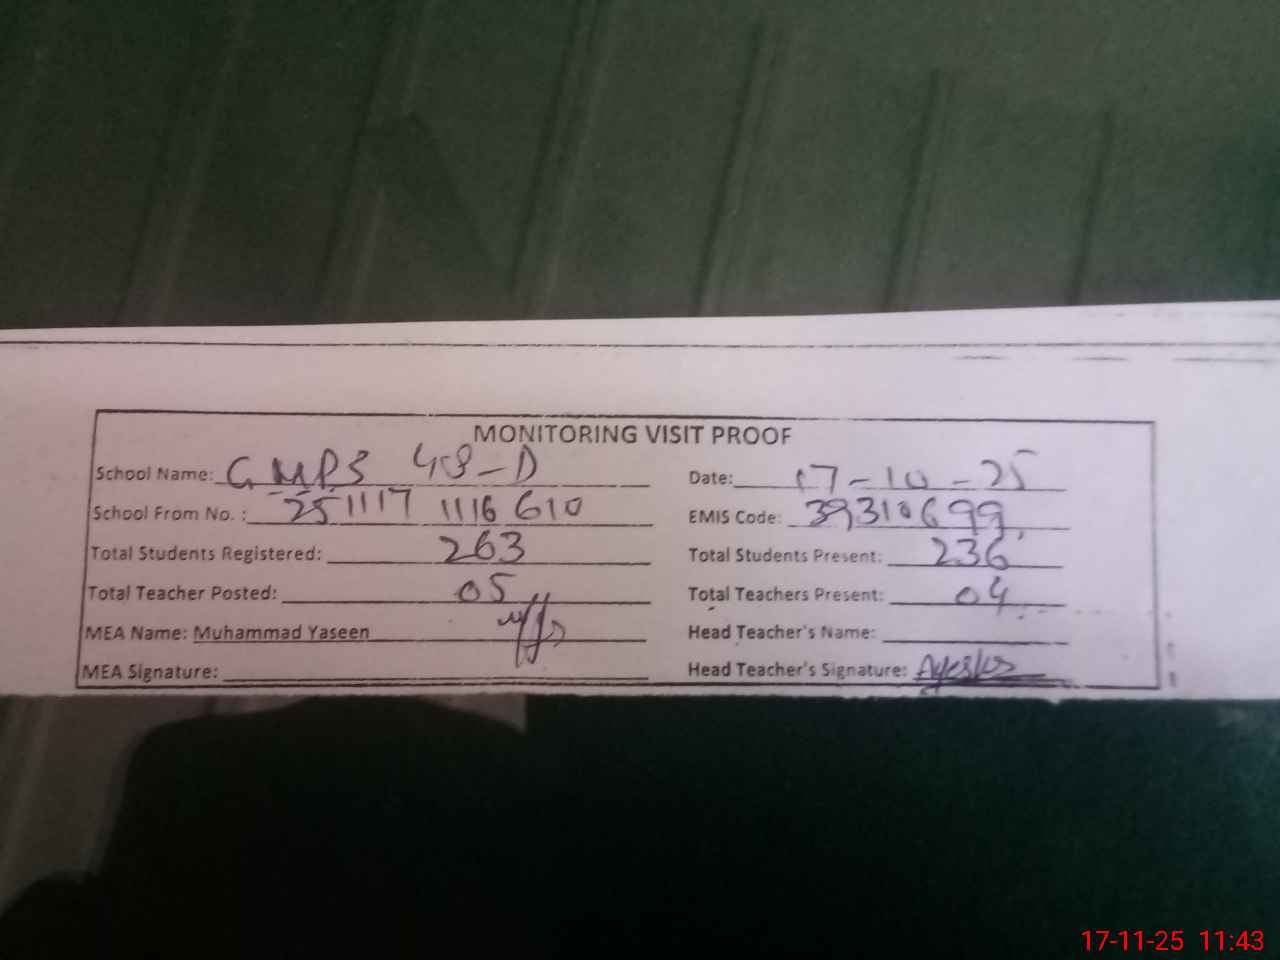 MONITORING VISIT PROOF
School Name: GMPS 48-D Date: 17-10-25
School From No. : 251117 1116 610 EMIS Code: 39310699
Total Students Registered: 263 Total Students Present: 236
Total Teacher Posted: 05 Total Teachers Present: 04
MEA Name: Muhammad Yaseen Head Teacher's Name:
MEA Signature: Head Teacher's Signature:
17-11-25 11:43